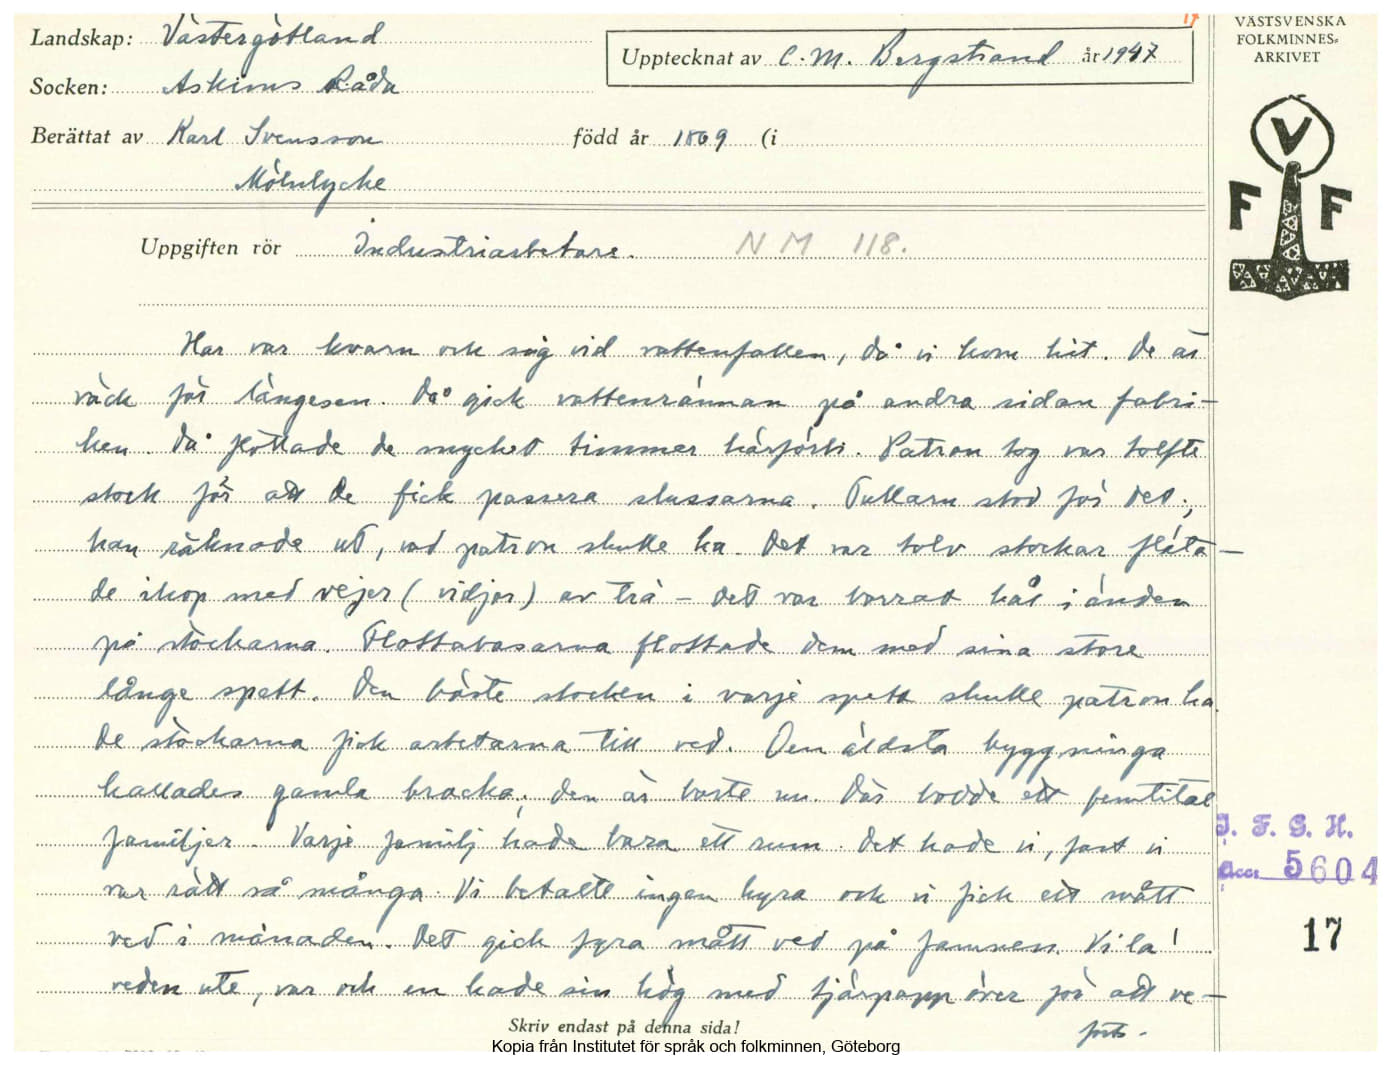 17
VÄSTSVENSKA
FOLKMINNES-
ARKIVET
Landskap: Västergötland
Upptecknat av C. M. Bergstrand år 1947
Socken: Askims Råda
Berättat av Karl Svensson född år 1869 (i
Mölnlycke
V
F F
Uppgiften rör Industriarbetare. NM 118.
Här var kvarn och såg vid vattenfallen, då vi kom hit. De är
väck för längesen. Då gick vattenrännan på andra sidan fabri-
ken. Då flottade de mycket timmer härförbi. Patron tog var tolfte
stock för att de fick passera slussarna. Tullarn stod för det;
han räknade ut, vad patron skulle ha. Det var tolv stockar fläta-
de ihop med vejer (vidjor) av trä – det var borrat hål i änden
på stockarna. Flottabasarna flottade dem med sina store
långe spett. Den bäste stocken i varje spett skulle patron ha.
De stockarna fick arbetarna till ved. Den äldsta byggninga
kallades gamla bracka; den är borte nu. Där bodde ett femtital
familjer. Varje familj hade bara ett rum. Det hade vi, fast vi
var rätt så många. Vi betalte ingen hyra och vi fick ett mått
ved i månaden. Det gick fyra mått ved på famnen. Vi la'
veden ute, var och en hade sin hög med tjärpapp över för att ve-
forts.
I. F. G. H.
Acc. 5604
17
Skriv endast på denna sida!
Kopia från Institutet för språk och folkminnen, Göteborg